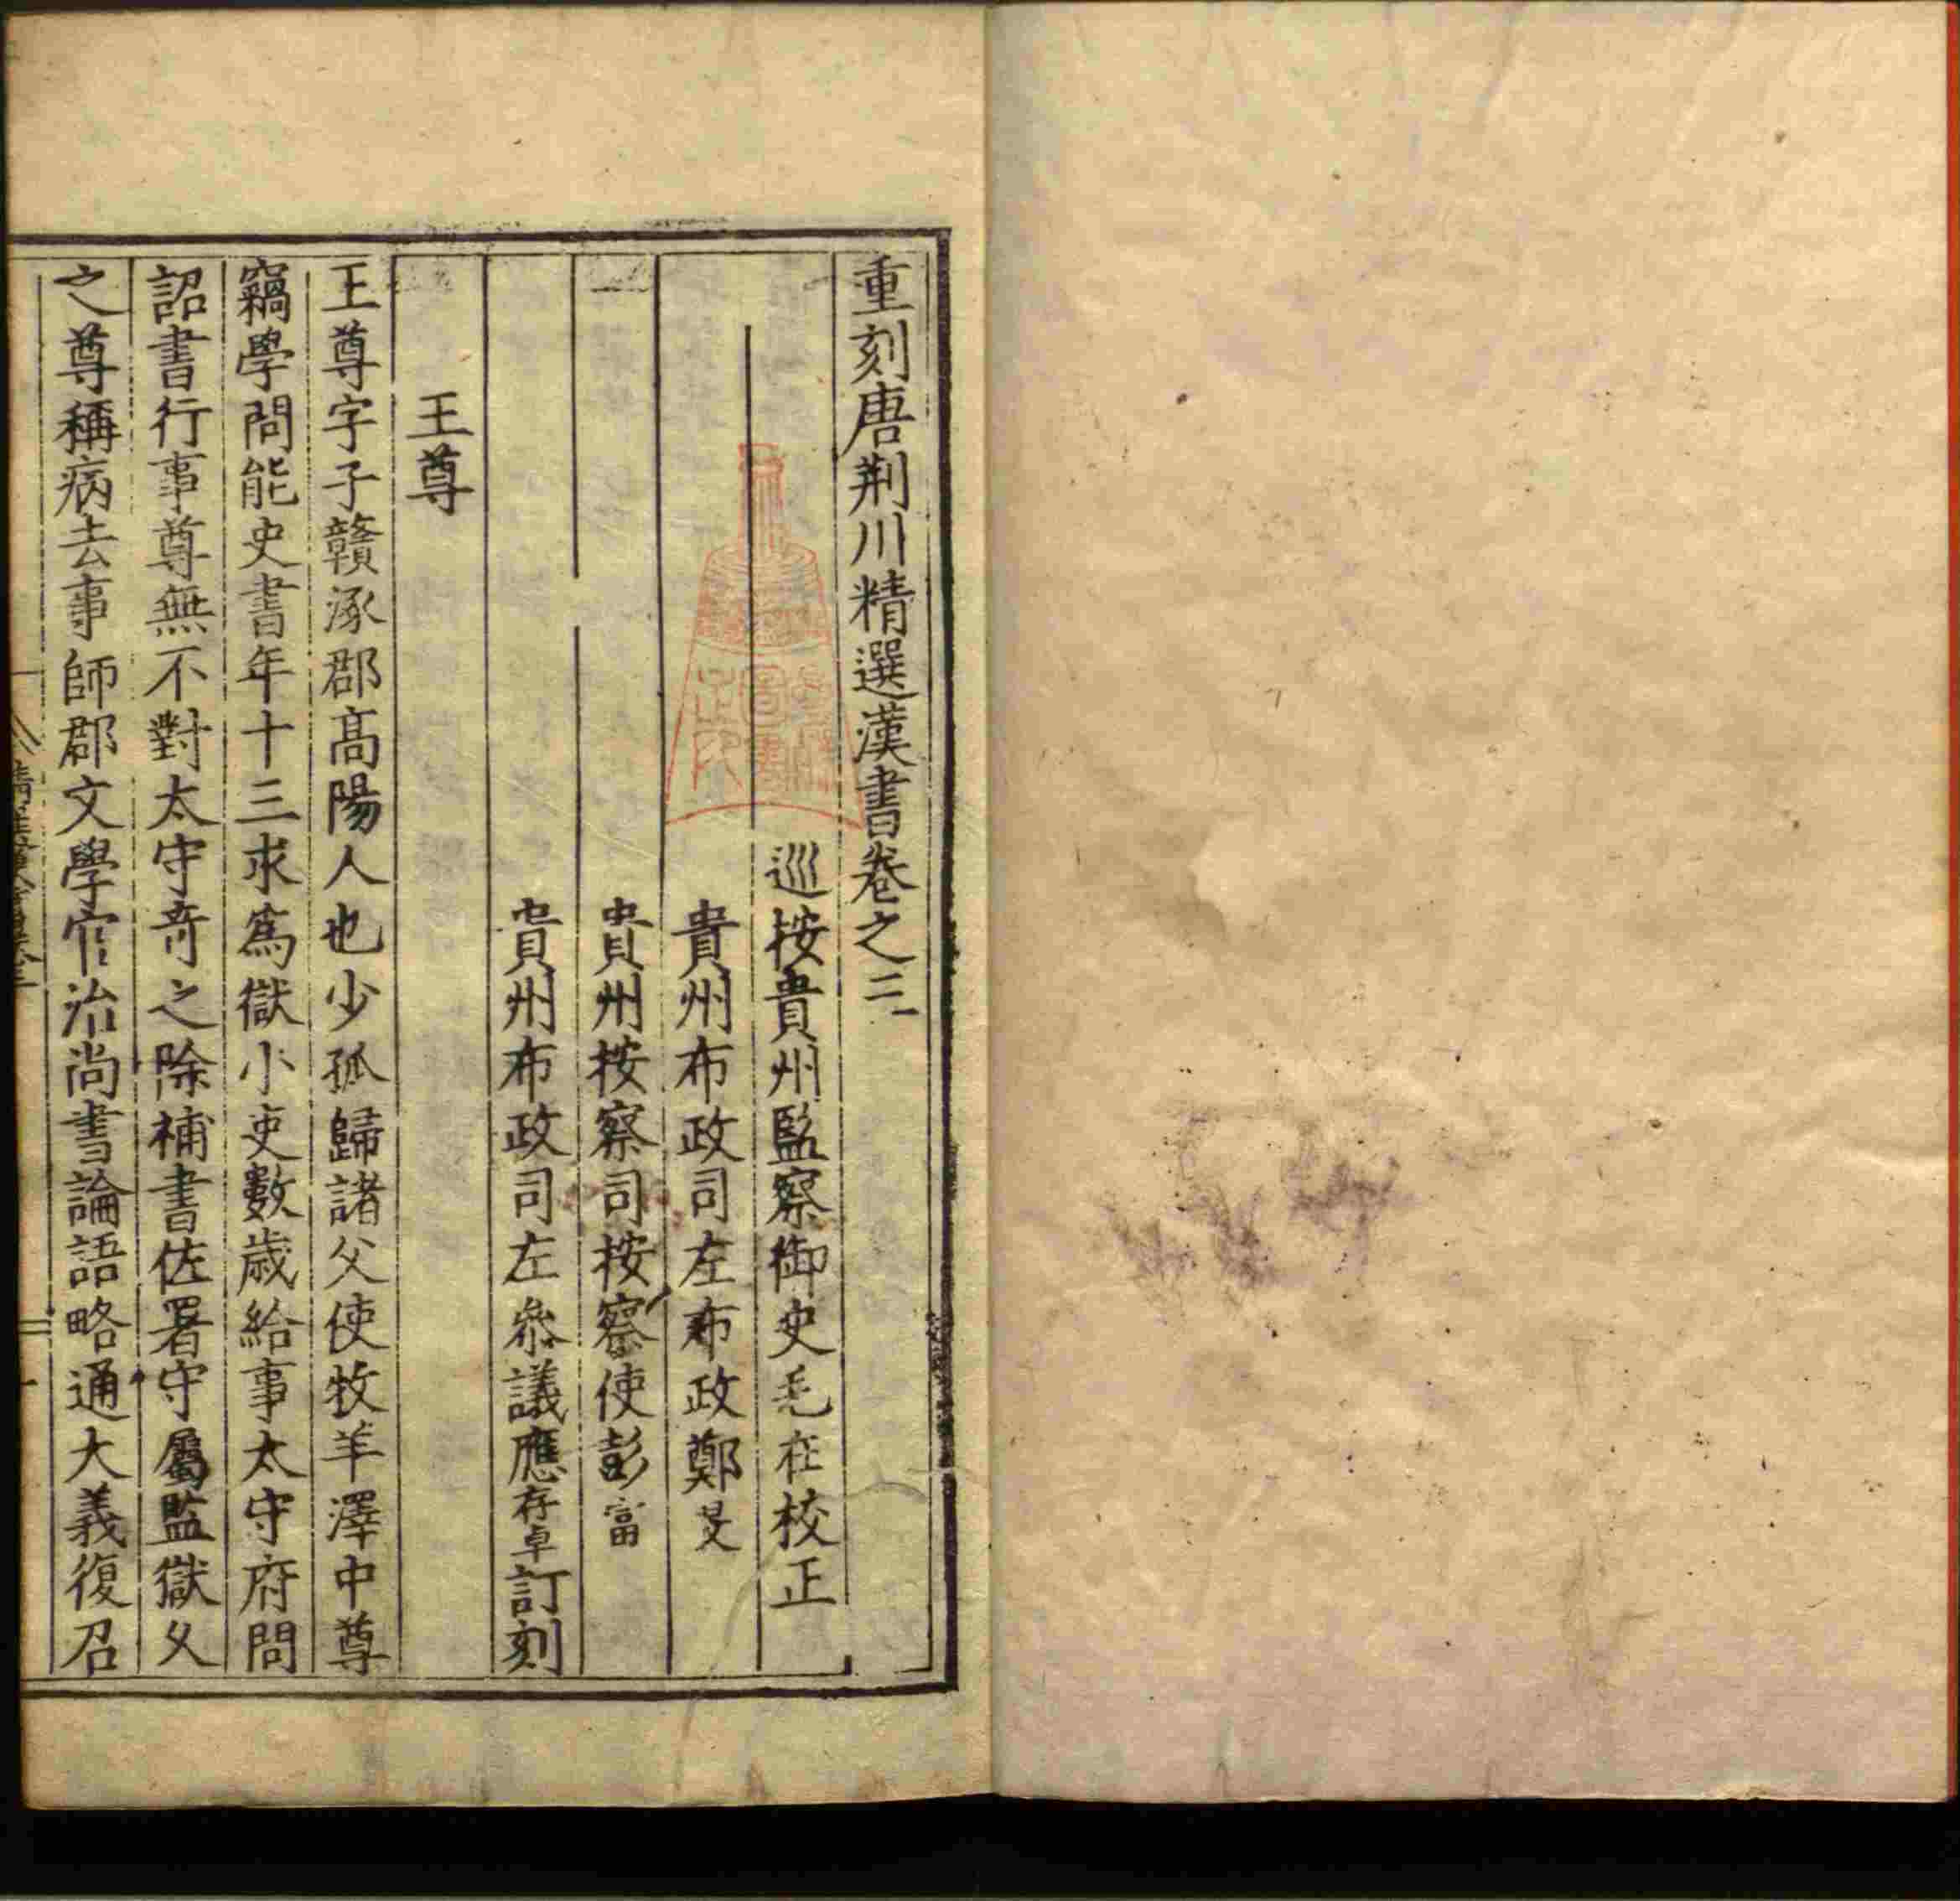 重刻唐荆川精選漢書卷之三
巡按貴州監察御史毛在校正
貴州布政司左布政鄭旻
貴州按察司按察使彭富
貴州布政司左叅議應存卓訂刻
王尊
王尊字子贛涿郡高陽人也少孤歸諸父使牧羊澤中尊
竊學問能史書年十三求爲獄小吏數歲給事太守府問
詔書行事尊無不對太守奇之除補書佐署守屬監獄久
之尊稱病去事師郡文學官治尚書論語略通大義復召